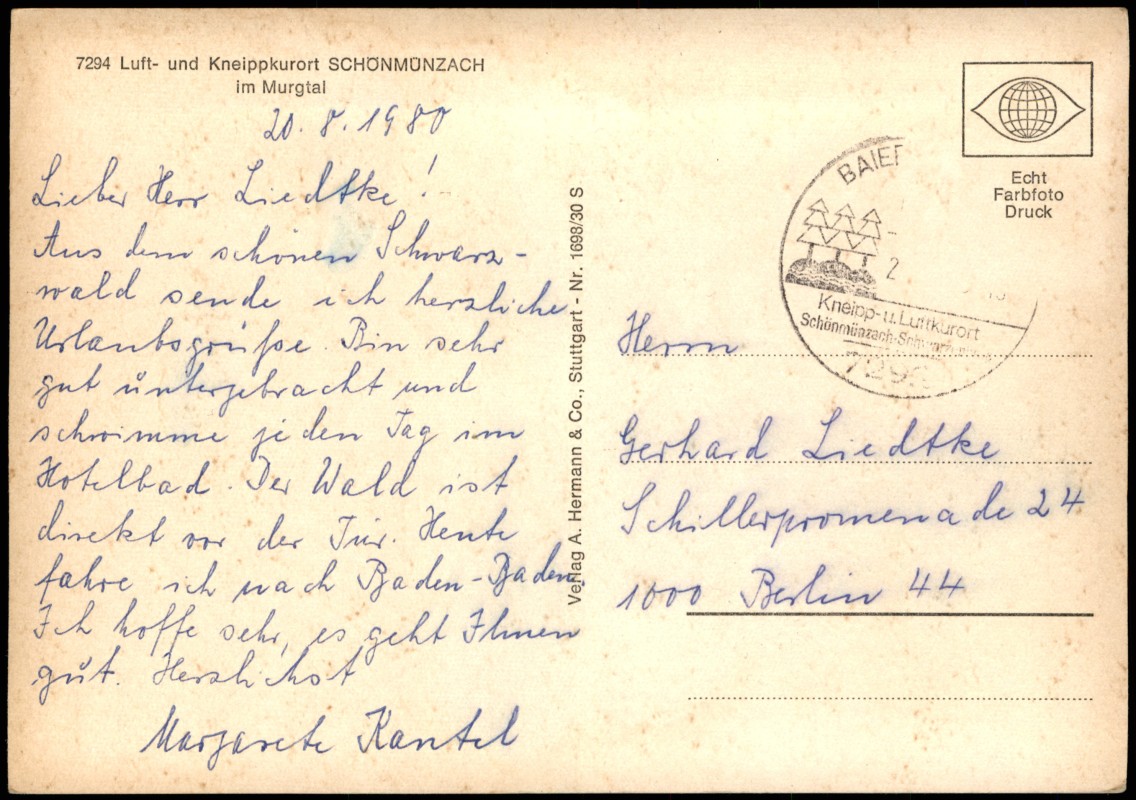 7294 Luft- und Kneippkurort SCHÖNMÜNZACH
im Murgtal
20.8.1980
Lieber Herr Liedtke!
Aus dem schönen Schwarz-
wald sende ich herzliche
Urlaubsgrüße. Bin sehr
gut untergebracht und
schwimme jeden Tag im
Hotelbad. Der Wald ist
direkt vor der Tür. Heute
fahre ich nach Baden-Baden.
Ich hoffe sehr, es geht Ihnen
gut. Herzlichst
Margarete Kantel
Verlag A. Hermann & Co., Stuttgart - Nr. 1698/30 S
Echt
Farbfoto
Druck
BAIER
Kneipp- u. Luftkurort
Schönmünzach-
729
Herrn
Gerhard Liedtke
Schillerpromenade 24
1000 Berlin 44